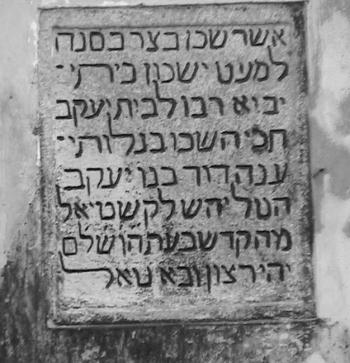 אשר שכן בצר בסנה
למעט ישכון ביתי־
יבוא רבו לבית יעקב
השכו בגלותי־
דור בנו יעקב
לקשטיאל
מהקדש בעת הושלם
יהי רצון ובא גואל